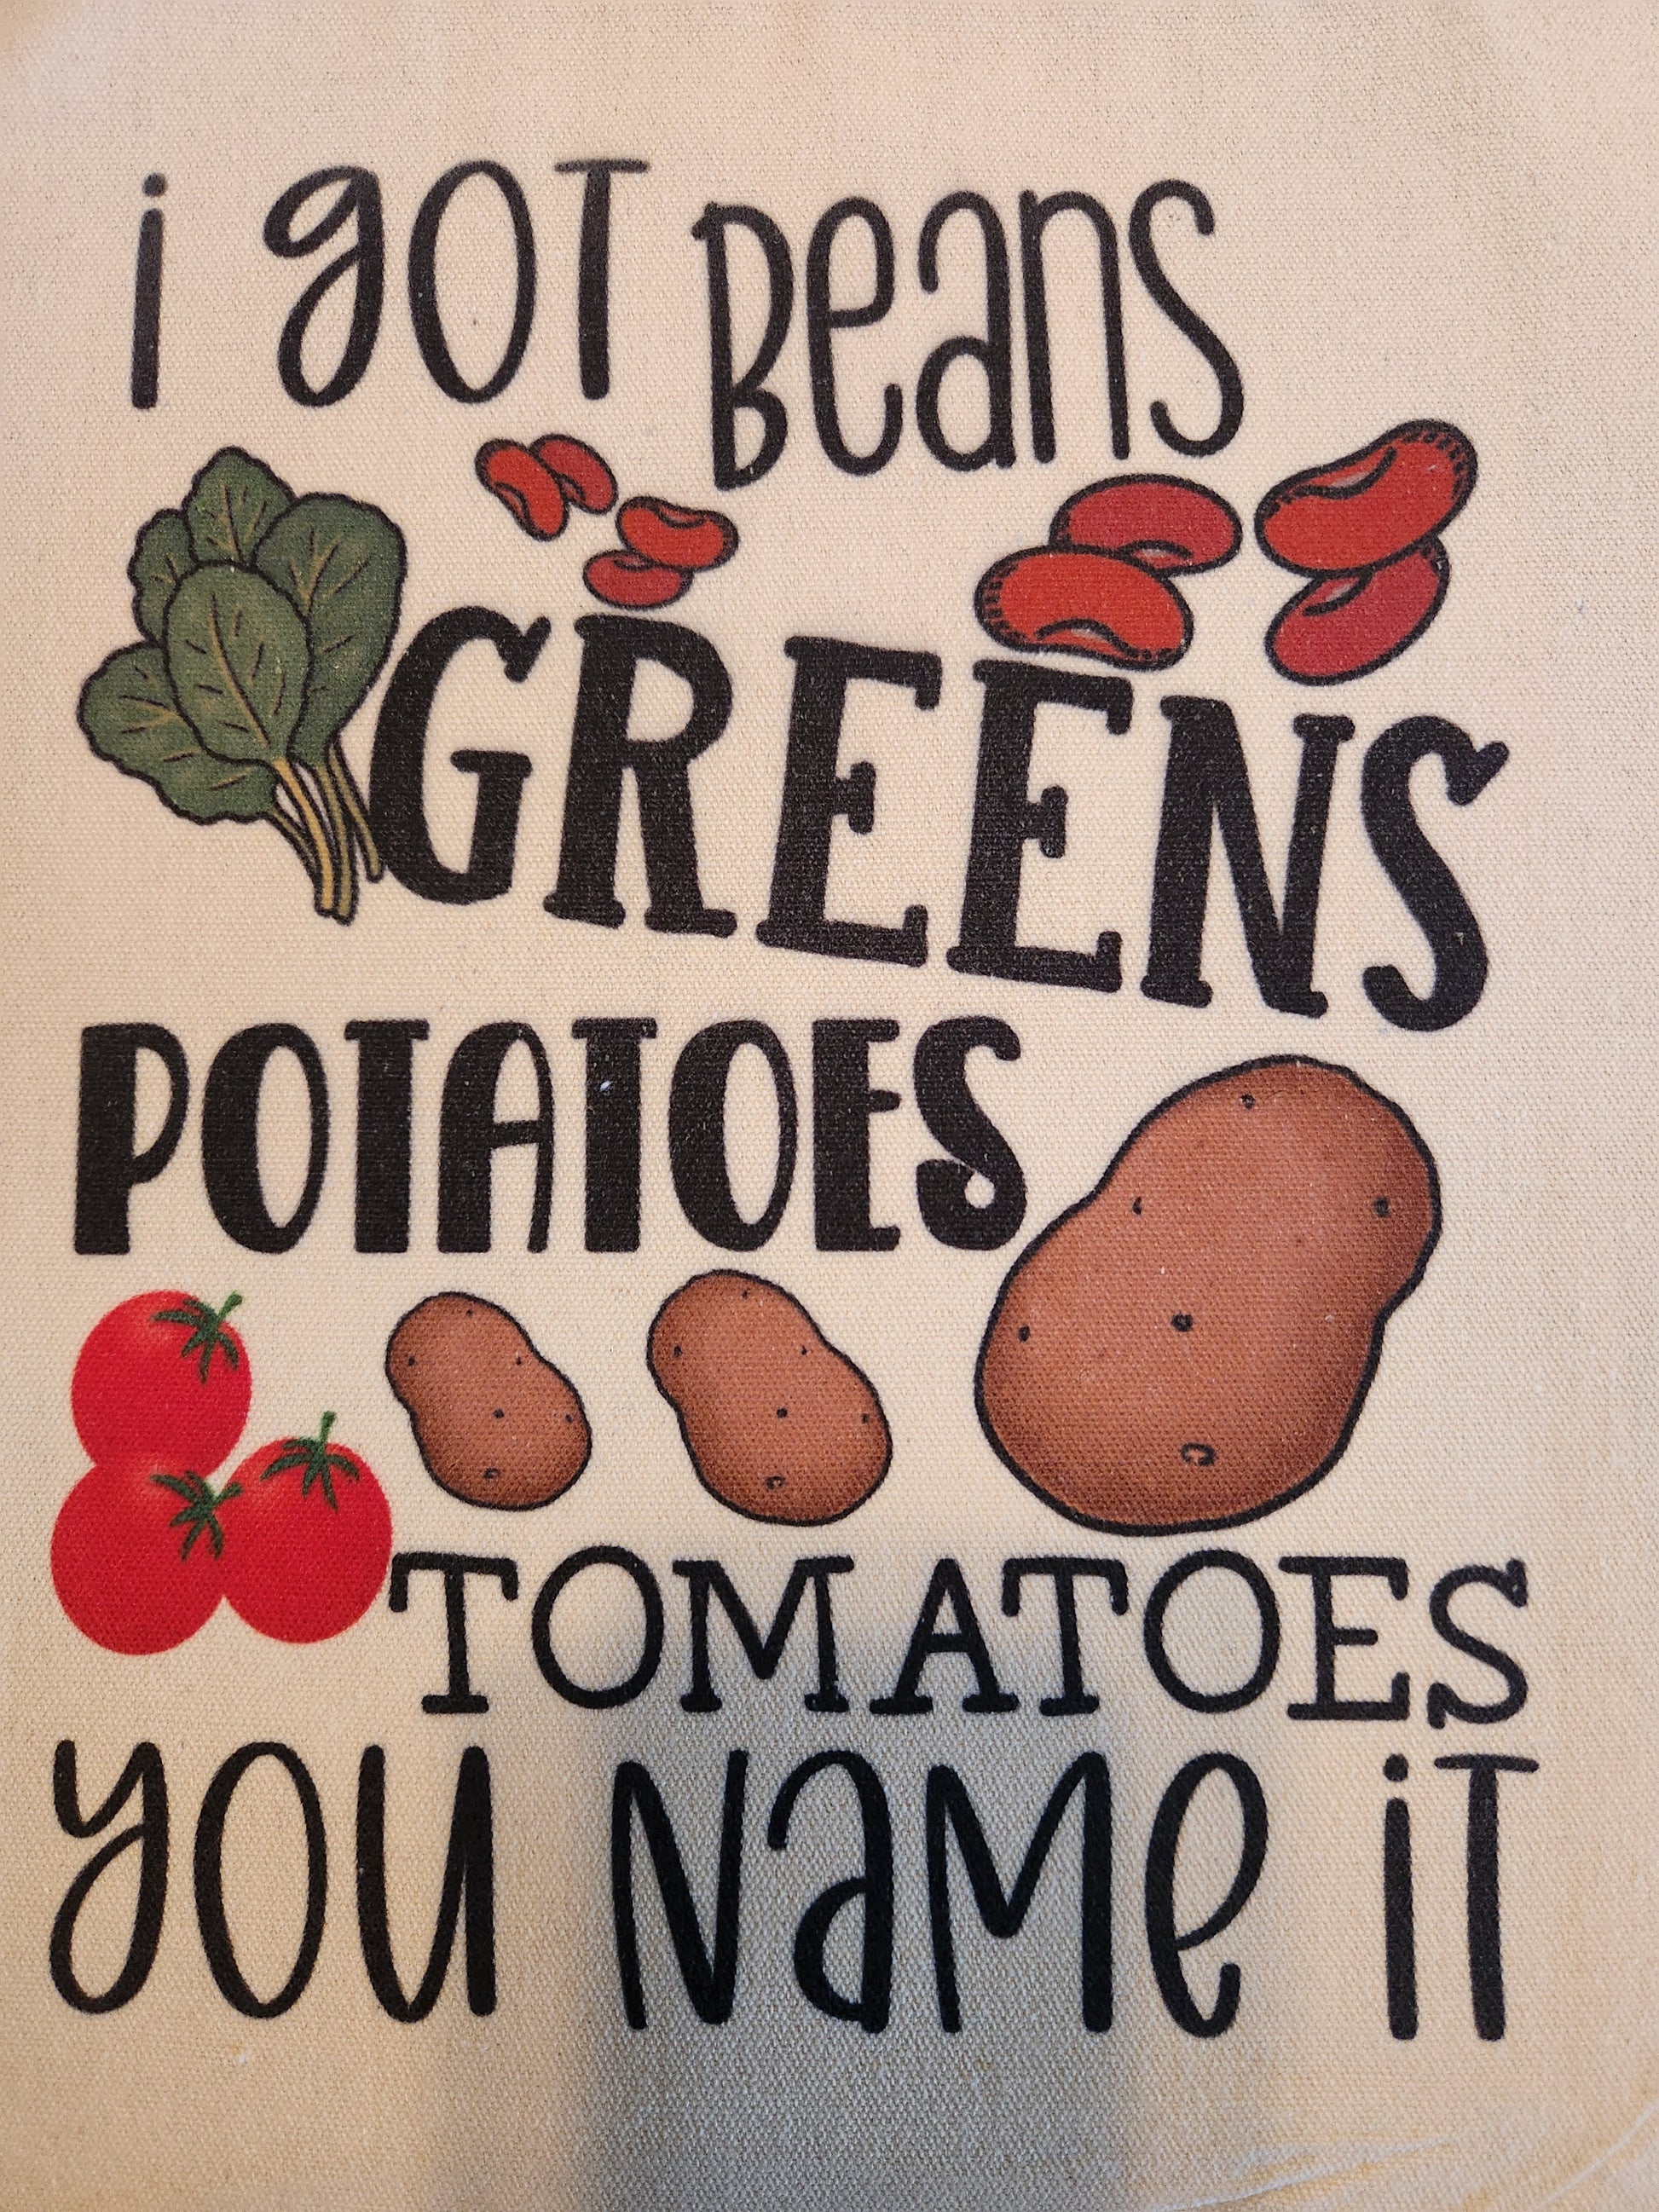 i gOT Beans
GREENS
POTATOES
TOMATOES
you name iT